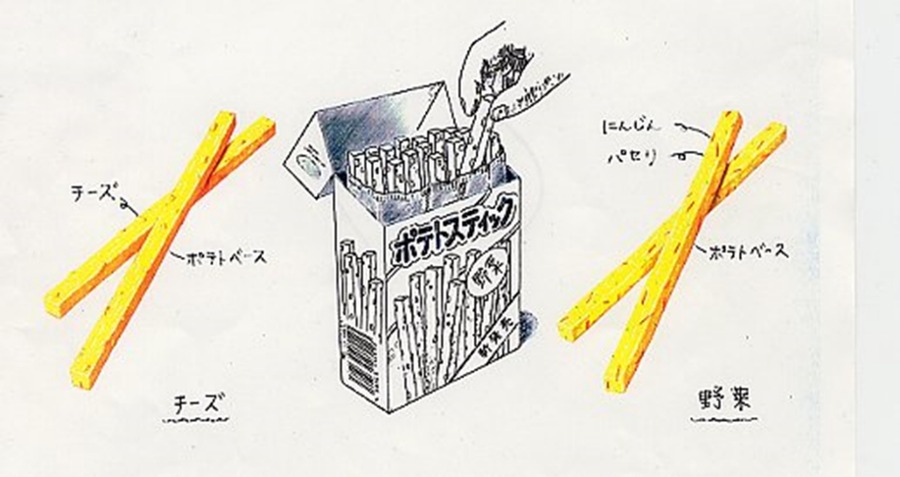 チーズ
ポテトベース
チーズ
ポテトスティック
野菜
新発売
にんじん
パセリ
ポテトベース
野菜